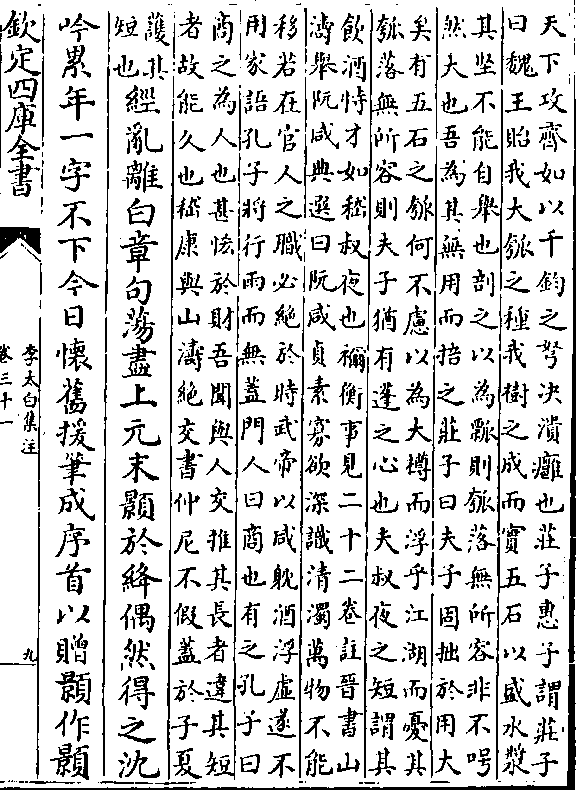 天下攻齊如以千鈞之弩决潰癰也莊子惠子謂莊子
曰魏王貽我大瓠之種我樹之成而實五石以盛水漿
其堅不能自舉也剖之以為瓢則瓠落無所容非不呺
然大也吾為其無用而掊之莊子曰夫子固拙於用大
矣有五石之瓠何不慮以為大樽而浮乎江湖而憂其
瓠落無所容則夫子猶有蓬之心也夫叔夜之短謂其
飲酒恃才如嵇叔夜也禰衡事見二十二卷註晉書山
濤舉阮咸典選曰阮咸貞素寡欲深識清濁萬物不能
移若在官人之職必絶於時武帝以咸躭酒浮虛遂不
用家語孔子將行雨而無蓋門人曰商也有之孔子曰
商之為人也甚恡於財吾聞與人交推其長者違其短
者故能久也嵇康與山濤絶交書仲尼不假蓋於子夏
護其
短也
經亂離白章句蕩盡上元末顥於絳偶然得之沈
吟累年一字不下今日懷舊援筆成序首以贈顥作顥
欽定四庫全書
李太白集注
卷三十一
九